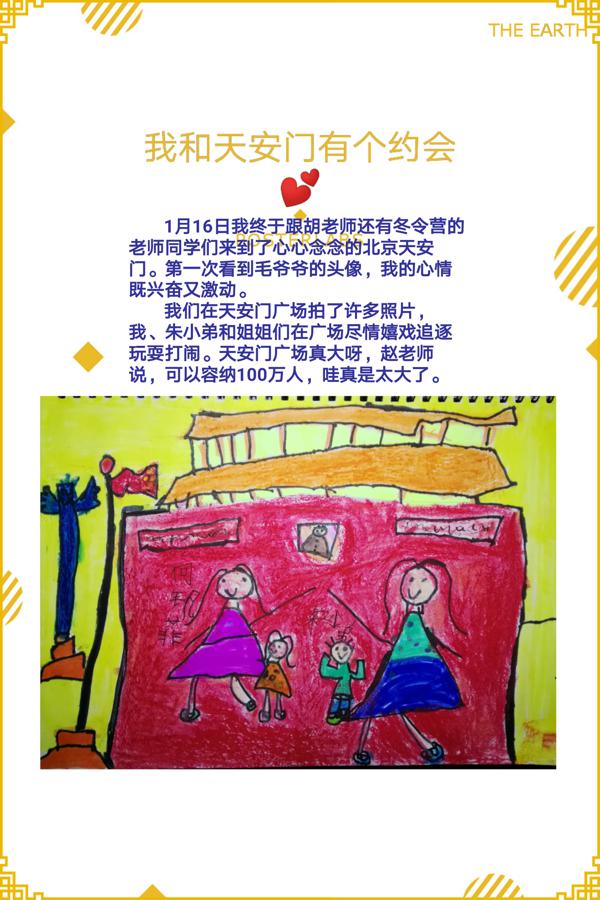 THE EARTH
我和天安门有个约会
1月16日我终于跟胡老师还有冬令营的
老师同学们来到了心心念念的北京天安
门。第一次看到毛爷爷的头像，我的心情
既兴奋又激动。
我们在天安门广场拍了许多照片，
我、朱小弟和姐姐们在广场尽情嬉戏追逐
玩耍打闹。天安门广场真大呀，赵老师
说，可以容纳100万人，哇真是太大了。